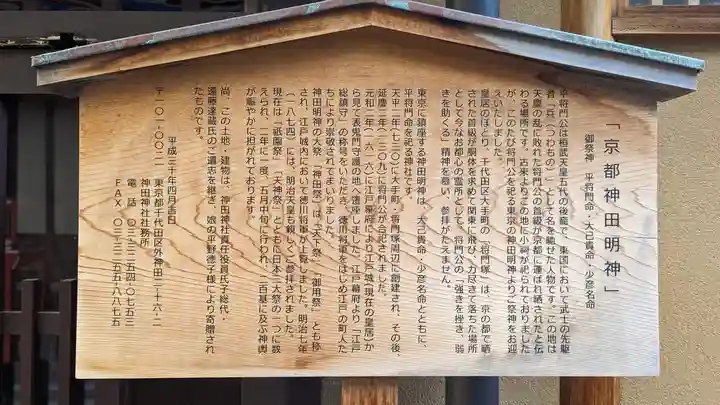 「京都神田明神」
御祭神　平将門命・大己貴命・少彦名命
平将門公は桓武天皇五代の後裔で、東国において武士の先駆
者「兵（つわもの）」として名を馳せた人物です。この地は
天慶の乱に敗れた将門公の首級が京都に運ばれ晒されたと伝
わる場所です。古来よりこの地に小祠が祀られておりました
が、このたび将門公を祀る東京の神田明神よりご祭神をお迎
えいたしました。
皇居のほとり、千代田区大手町の「将門塚」は、京の都で晒
された首級が胴体を求めて関東に飛び、力尽きて落ちた場所
として今なお都心の霊所として、将門公の「強きを挫き、弱
きを助くる」精神を慕い、参拝がたえません。
東京に鎮座する神田明神は、大己貴命・少彦名命とともに、
平将門命を祀る神社です。
天平二年（七三〇）に大手町・将門塚周辺に創建され、その後、
延慶二年（一三〇九）に将門公が合祀されました。
元和二年（一六一六）に江戸幕府により江戸城（現在の皇居）か
ら見て表鬼門守護の地へ遷座しました。江戸幕府より「江戸
総鎮守」の称号をいただき、徳川将軍をはじめ江戸の町人た
ちにより崇敬されてまいりました。
神田明神の大祭「神田祭」は、「天下祭」「御用祭」とも称
され、江戸城内において徳川将軍が上覧しました。明治七年
（一八七四）には、明治天皇も親しくご参拝されました。
現在は「祇園祭」「天神祭」とともに日本三大祭の一つに数
えられ、二年に一度、五月中旬に行われ、二百基に及ぶ神輿
が賑やかに担がれております。
尚、この土地・建物は、神田神社責任役員氏子総代・
遠藤達藏氏のご遺志を継ぎ、娘の平野徳子様により寄贈され
たものです。
平成三十年四月吉日
〒一〇一-〇〇二一　東京都千代田区外神田二-十六-二
神田神社社務所
電　話　〇三-三二五四-〇七五三
ＦＡＸ　〇三-三二五五-八八七五